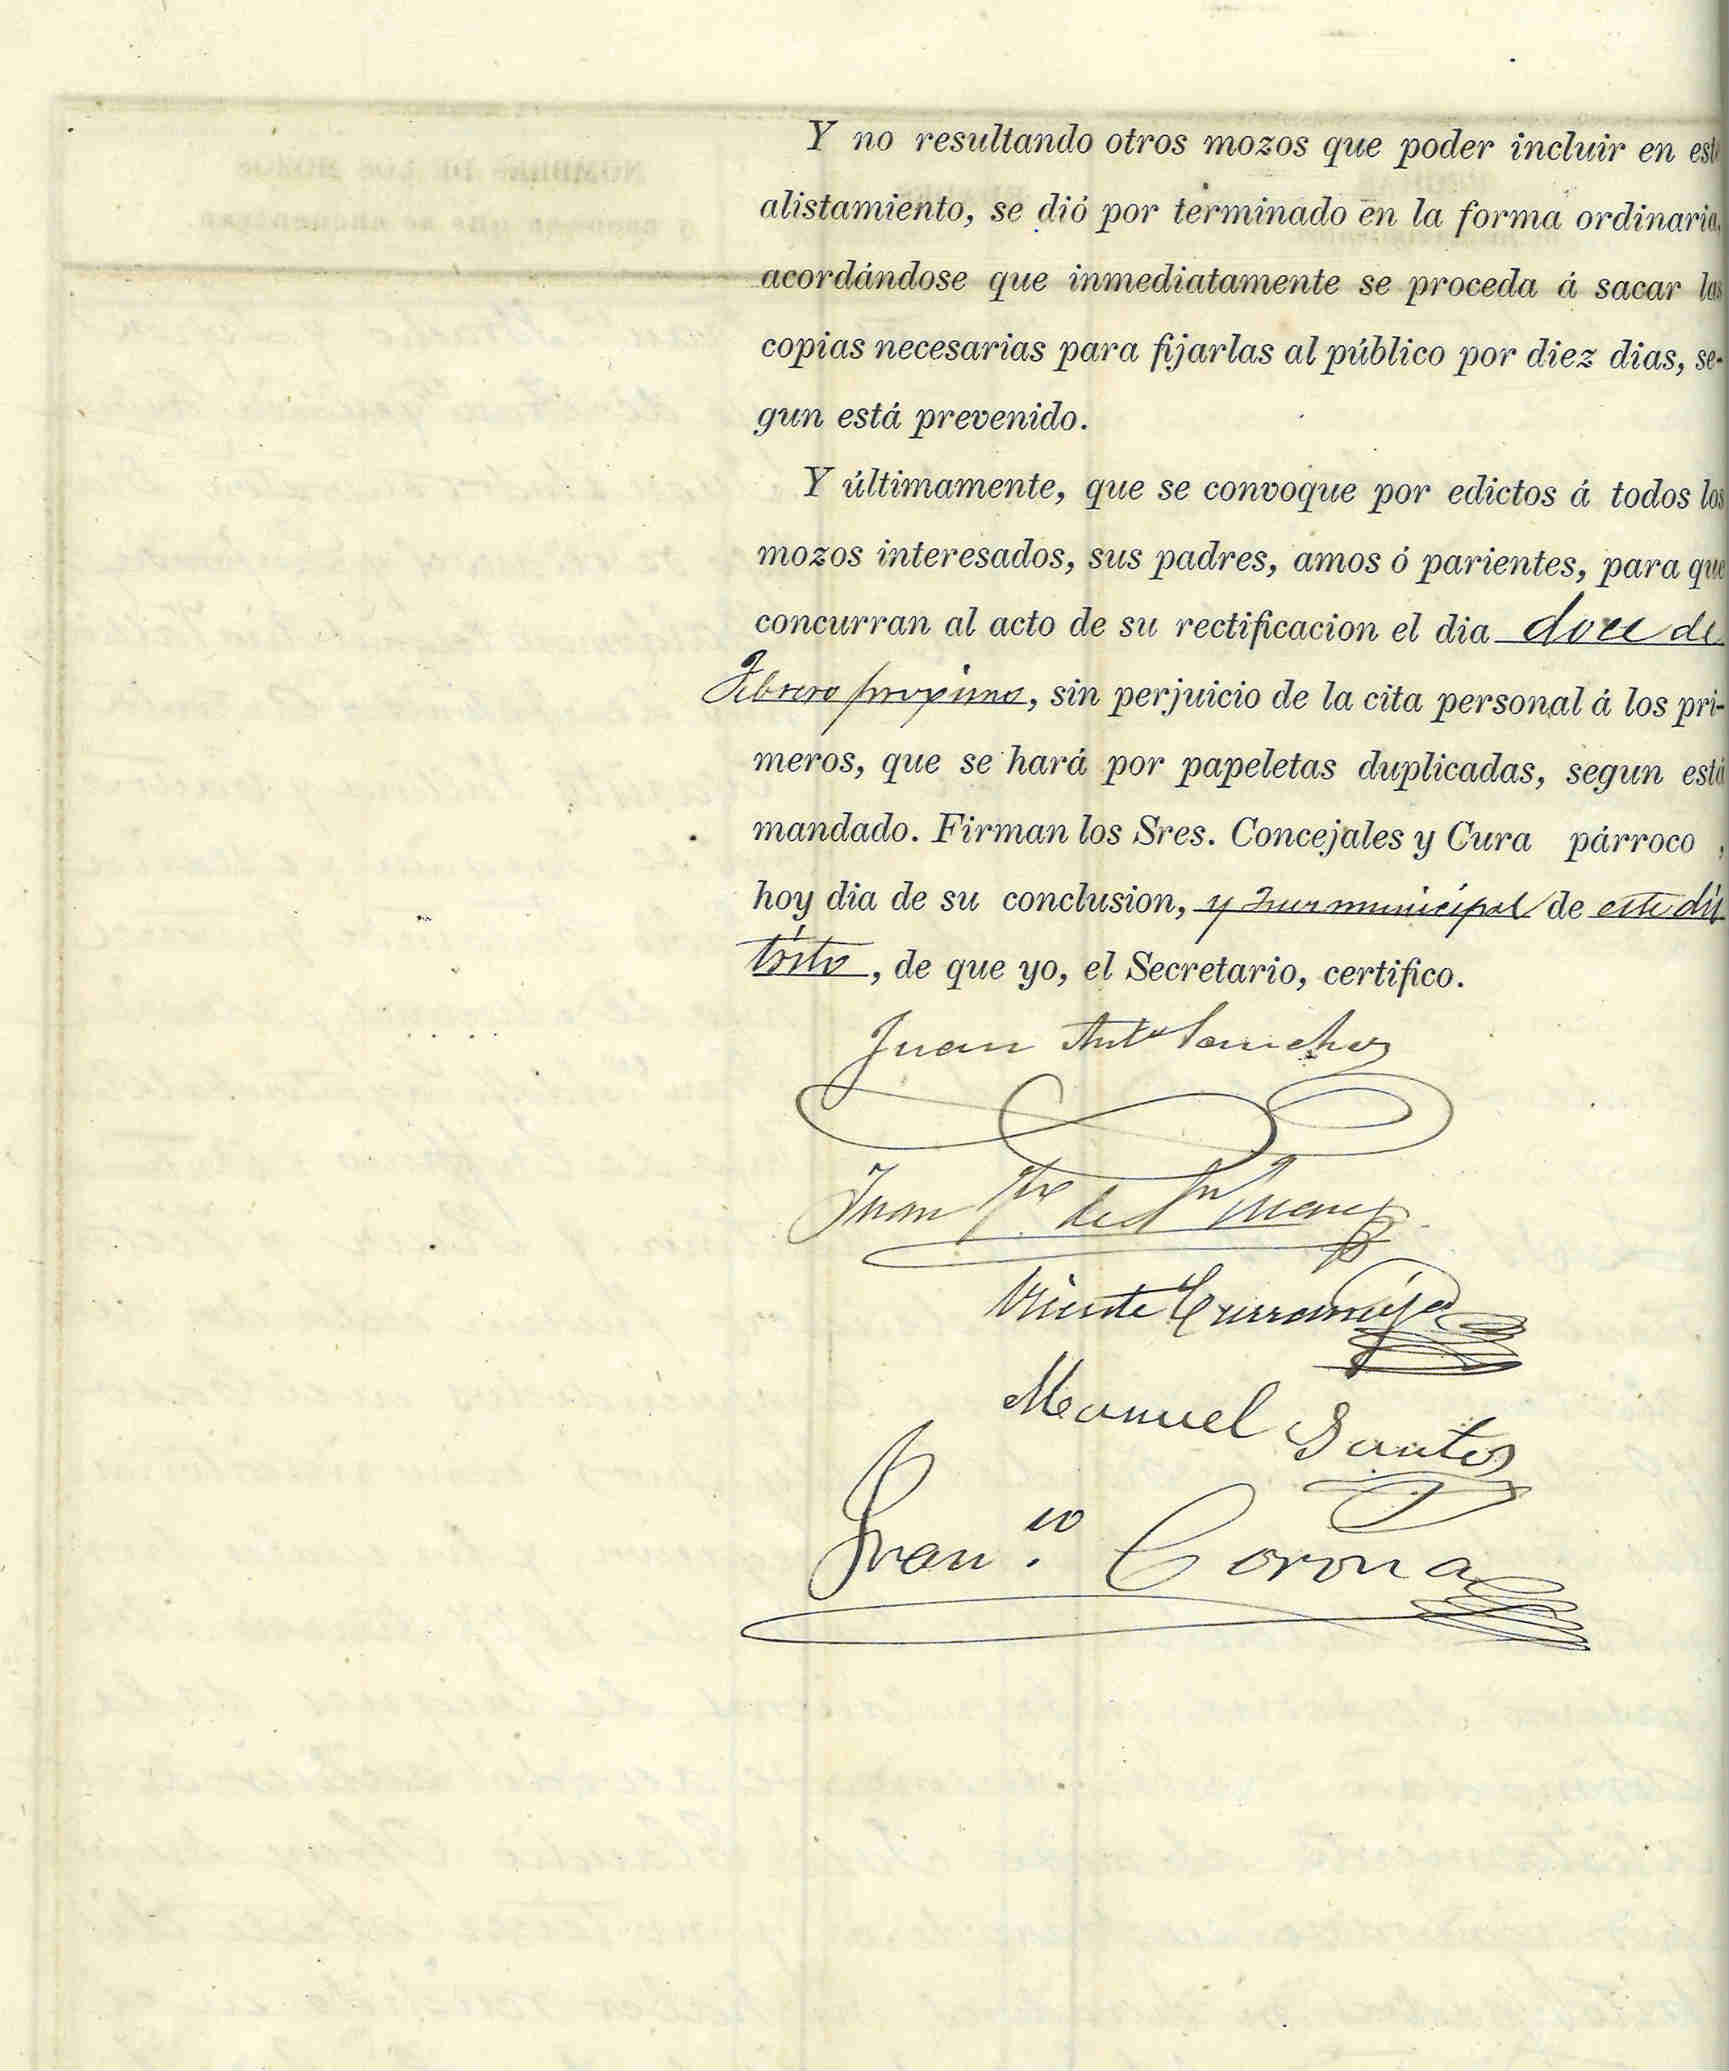 Y no resultando otros mozos que poder incluir en este
alistamiento, se dió por terminado en la forma ordinaria,
acordándose que inmediatamente se proceda á sacar las
copias necesarias para fijarlas al público por diez dias, se-
gun está prevenido.
Y últimamente, que se convoque por edictos á todos los
mozos interesados, sus padres, amos ó parientes, para que
concurran al acto de su rectificacion el dia doce de
Febrero proximo, sin perjuicio de la cita personal á los pri-
meros, que se hará por papeletas duplicadas, segun está
mandado. Firman los Sres. Concejales y Cura párroco,
hoy dia de su conclusion, y Juez municipal de este dis
trito, de que yo, el Secretario, certifico.
Juan Anto Sanchez
Juan
Vicente
Manuel Santos
Franco. Corona